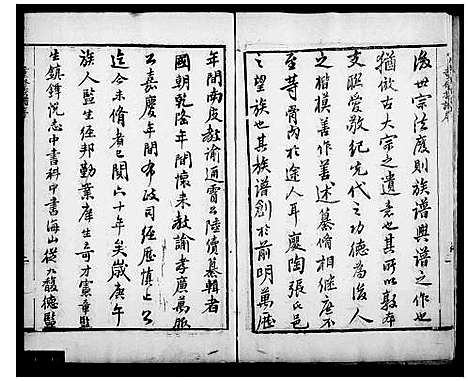 後世宗法廢則族譜興譜之作也
猶倣古大宗之遺意也其所以敦本
支聯愛敬紀先代之功德為後人
之楷模善作善述纂脩相继庶不
至等骨肉於途人耳廮陶張氏邑
之望族也其族譜創於前明萬歷
年間南皮教諭通霄公陸續纂輯者
國朝乾隆年間懷来教諭孝廣萬
公嘉慶年間布政司經歷慎上公
迄今未脩者已閱六十年矣歲庚午
族人監生經邦勤業庠生奇才憲章監
生鎮鐸悅志中書科中書海山從九馥德監